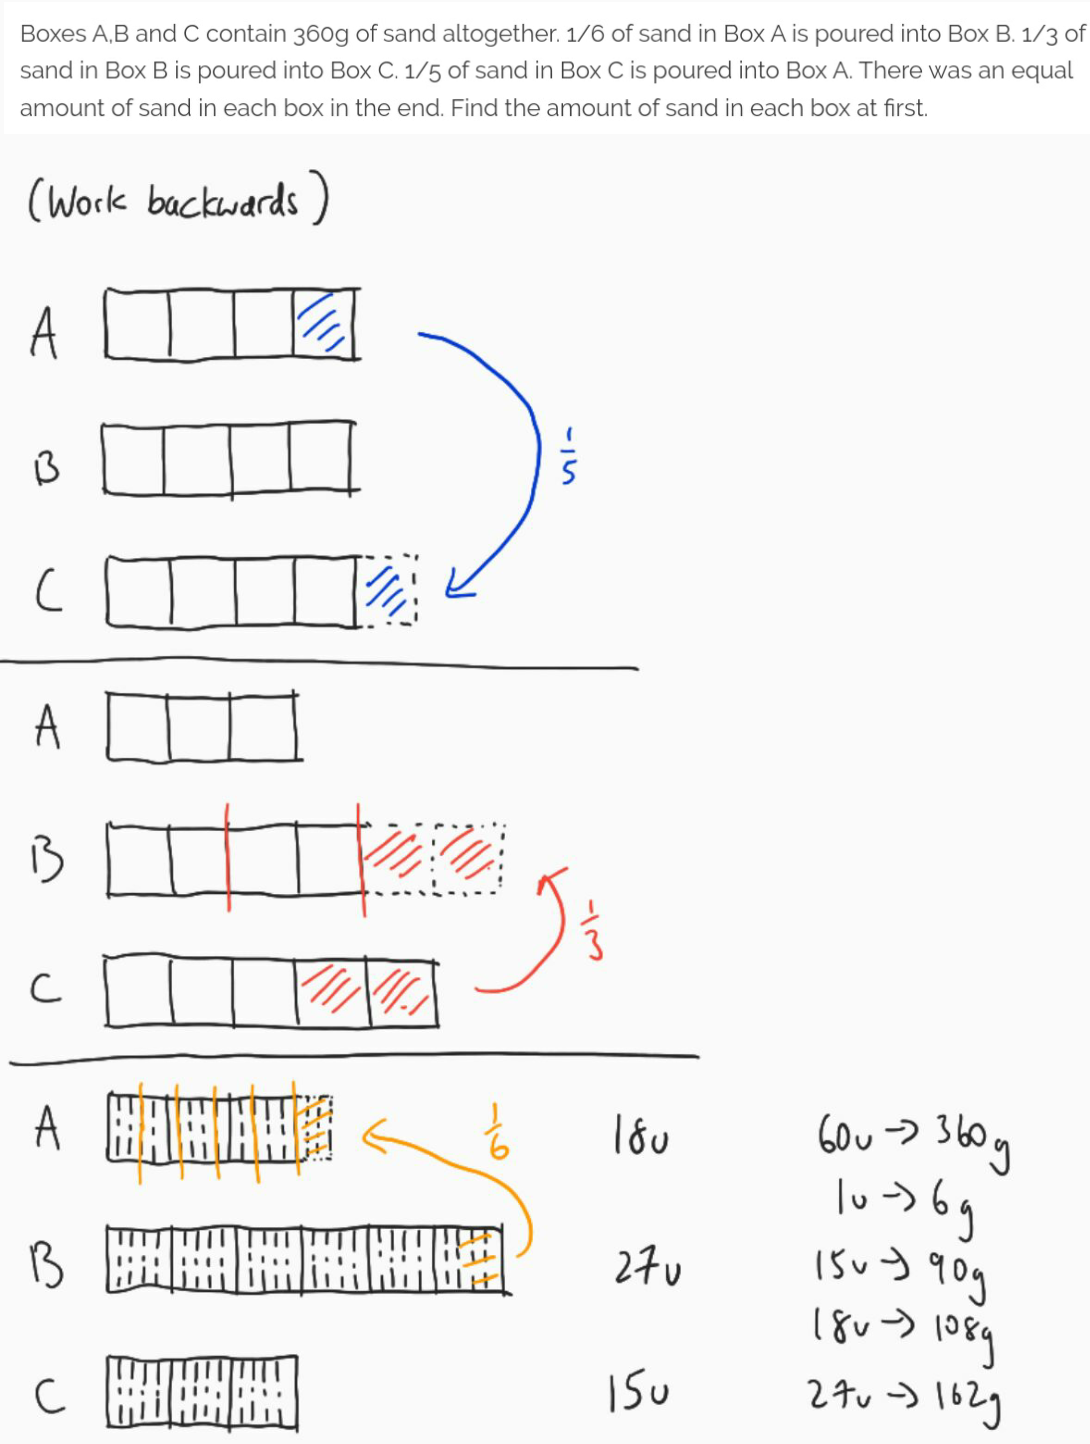 Boxes A,B and C contain 360g of sand altogether. 1/6 of sand in Box A is poured into Box B. 1/3 of
sand in Box B is poured into Box C. 1/5 of sand in Box C is poured into Box A. There was an equal
amount of sand in each box in the end. Find the amount of sand in each box at first.
(Work backwards)
A
B
1/5
C
A
B
1/3
C
A
1/6
18u
60u → 360g
1u → 6g
B
27u
15u → 90g
18u → 108g
C
15u
27u → 162g